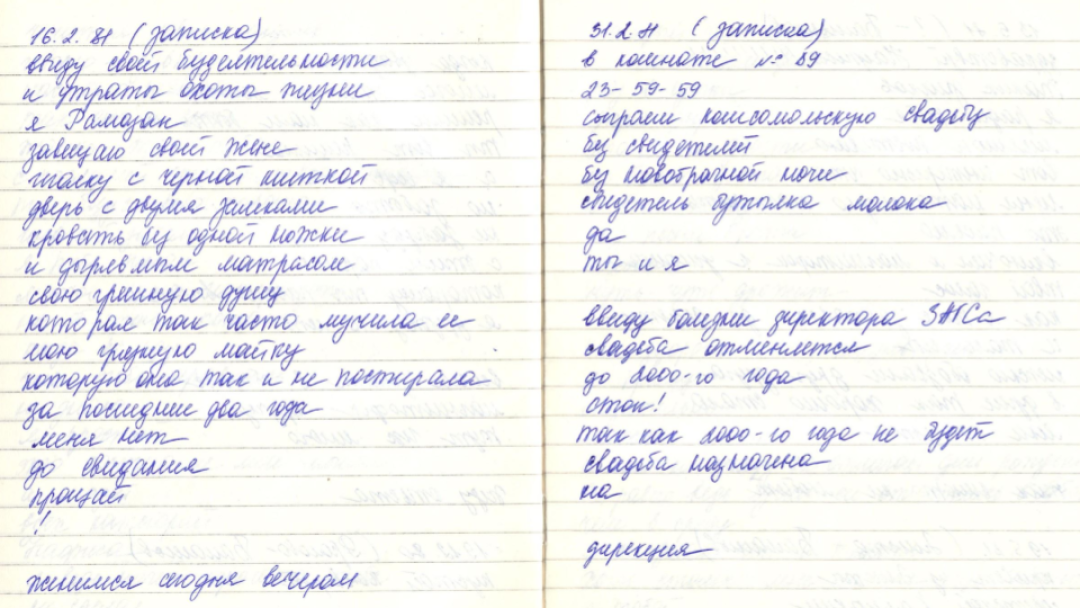 16.2.81 (записка)
ввиду своей бедеятельности
и утраты охоты жизни
я Рамазан
завещаю своей жене
шапку с черной кисткой
дверь с двумя замками
кровать без одной ножки
и дырявым матрасом
свою грешную душу
которая так часто мучила ее
мою грязную майку
которую она так и не постирала
за последние два года
меня нет
до свидания
прощай
!
женимся сегодня вечером
31.2.81 (записка)
в комнате № 69
23-59-59
сыграем комсомольскую свадьбу
без свидетелей
без новобрачной ночи
свидетель бутылка молока
да
ты и я
ввиду болезни директора ЗАГСа
свадьба отменяется
до 2000-го года
стоп!
так как 2000-го года не будет
свадьба назначена
на
дирекция